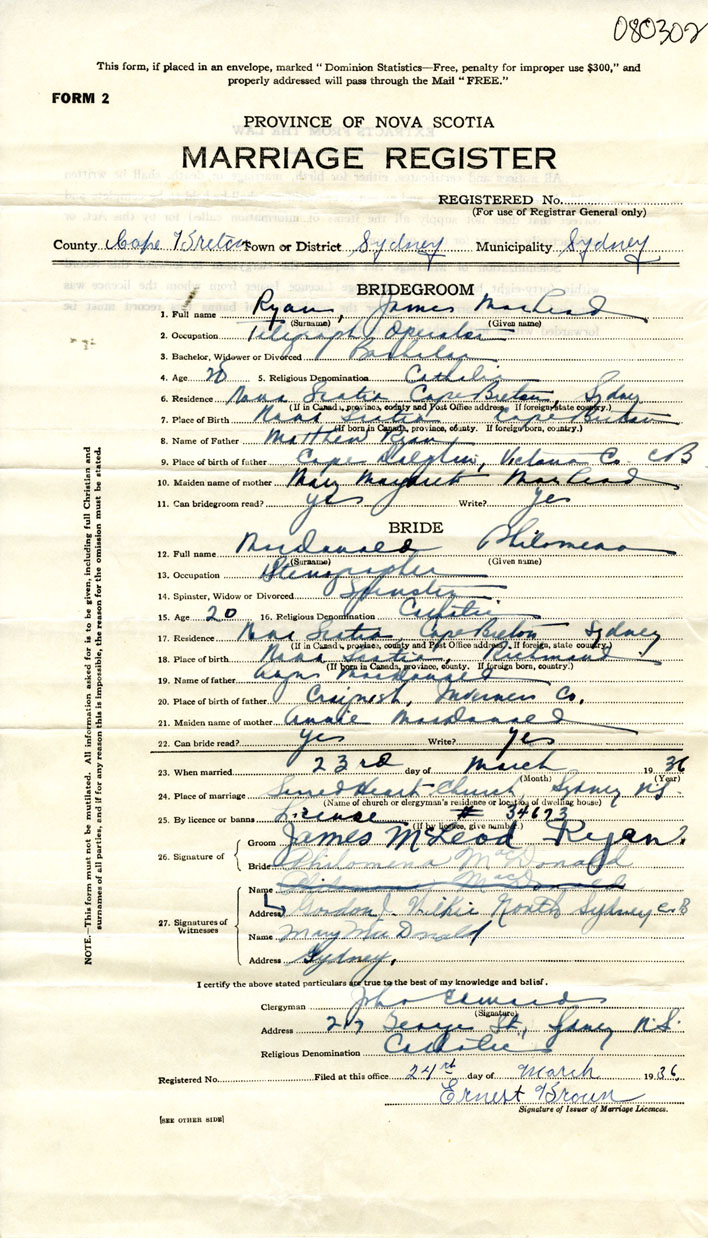 080302
This form, if placed in an envelope, marked "Dominion Statistics—Free, penalty for improper use $300," and
properly addressed will pass through the Mail "FREE."
FORM 2
PROVINCE OF NOVA SCOTIA
MARRIAGE REGISTER
REGISTERED No.
(For use of Registrar General only)
County Cape Breton Town or District Sydney Municipality Sydney
BRIDEGROOM
1. Full name Ryan, James MacLeod
(Surname) (Given name)
2. Occupation Telegraph Operator
3. Bachelor, Widower or Divorced Bachelor
4. Age 20 5. Religious Denomination Catholic
6. Residence Nova Scotia Cape Breton, Sydney
(If in Canada, province, county and Post Office address. If foreign, state country.)
7. Place of Birth Nova Scotia Cape Breton
(If born in Canada, province, county. If foreign born, country.)
8. Name of Father Matthew Ryan
9. Place of birth of father Cape Dolphin, Victoria Co. C B
10. Maiden name of mother Mary Margaret MacLeod
11. Can bridegroom read? yes Write? yes
BRIDE
12. Full name MacDonald Philomena
(Surname) (Given name)
13. Occupation Stenographer
14. Spinster, Widow or Divorced Spinster
15. Age 20 16. Religious Denomination Catholic
17. Residence Nova Scotia, Cape Breton Sydney
(If in Canada, province, county and Post Office address. If foreign, state country.)
18. Place of birth Nova Scotia, Richmond
(If born in Canada, province, county. If foreign born, country.)
19. Name of father Angus MacDonald
20. Place of birth of father Craignish, Inverness Co.
21. Maiden name of mother Annie MacDonald
22. Can bride read? yes Write? yes
23. When married 23rd day of March 19 36
(Month) (Year)
24. Place of marriage Sacred Heart Church, Sydney N.S.
(Name of church or clergyman's residence or location of dwelling house)
25. By licence or banns License # 34673
(If by licence, give number.)
26. Signature of Groom James McLeod Ryan.
Bride Philomena MacDonald
27. Signatures of Witnesses
Name Philomena MacDonald
Address Gordon J. Wilkie North Sydney C.B
Name Mary MacDonald
Address Sydney.
I certify the above stated particulars are true to the best of my knowledge and belief.
Clergyman John
(Signature)
Address 217 George St., Sydney N.S.
Religious Denomination Catholic
Registered No. Filed at this office 24rd day of March 19 36.
Ernest Brown
Signature of Issuer of Marriage Licences.
[SEE OTHER SIDE]
NOTE.—This form must not be mutilated. All information asked for is to be given, including full Christian and
surnames of all parties, and if for any reason this is impossible, the reason for the omission must be stated.